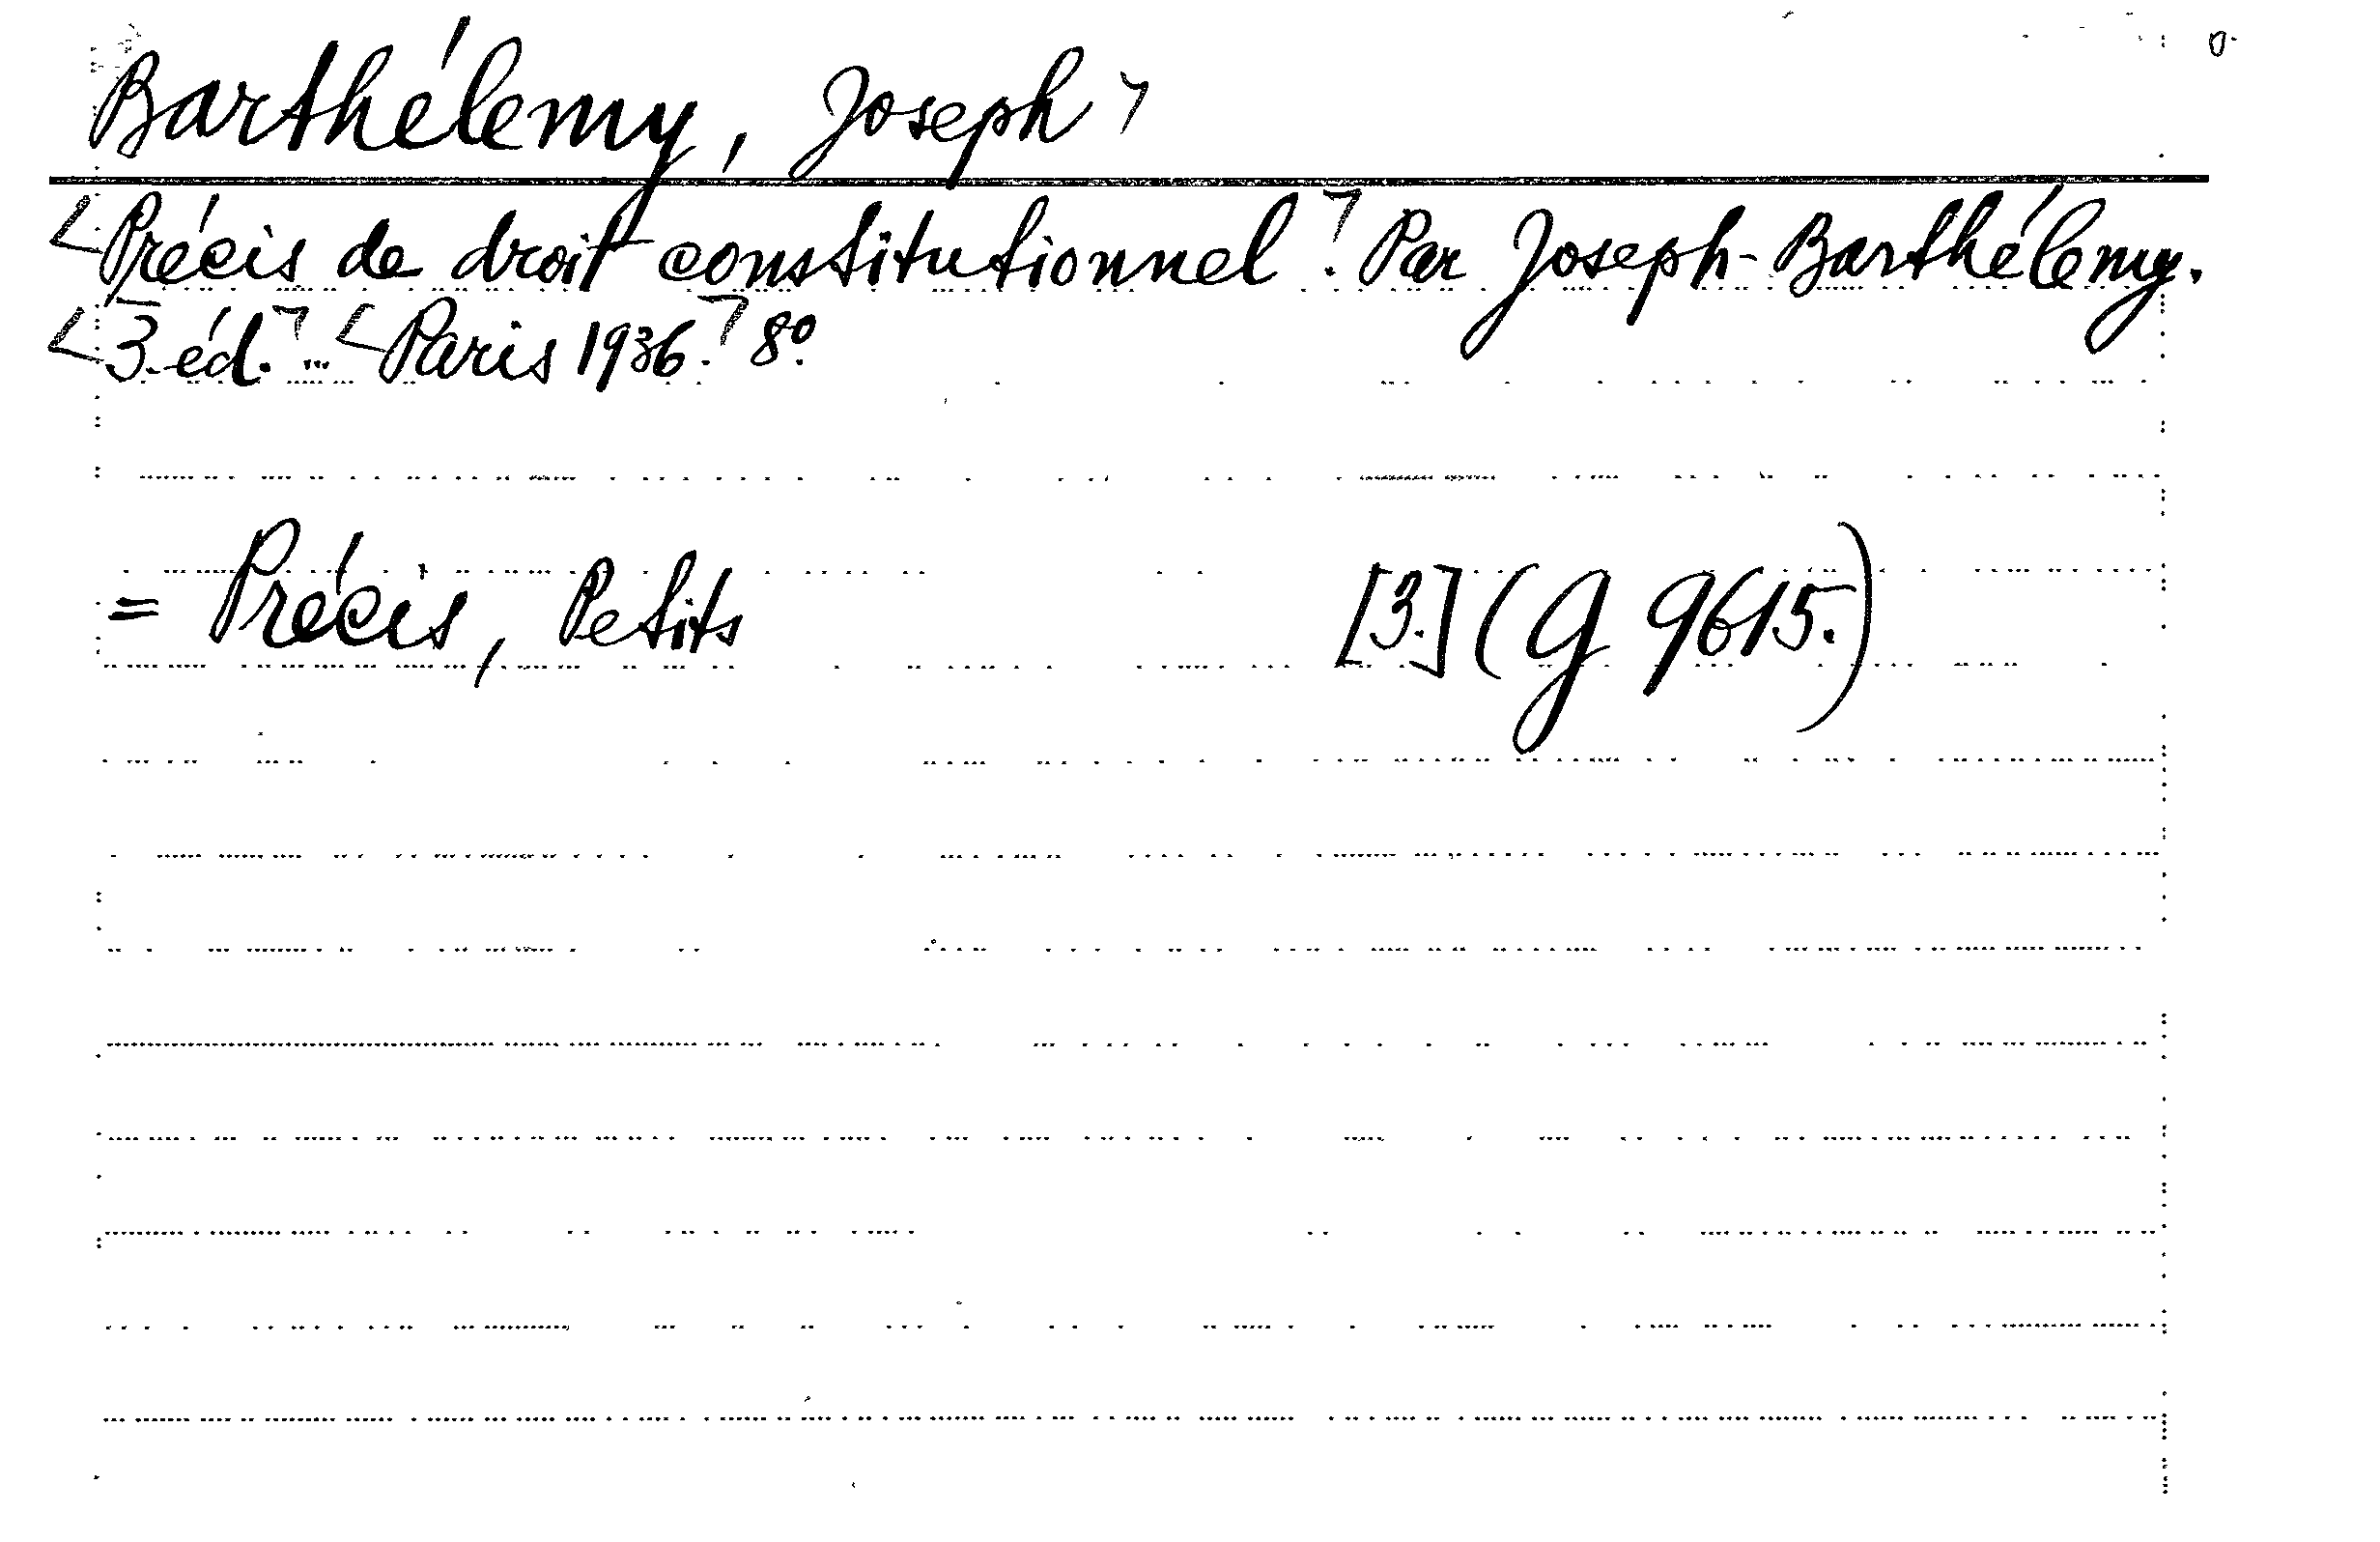 Barthélemy, Joseph
Précis de droit constitutionnel. Par Joseph-Barthélemy.
3. éd. ... Paris 1936. 8º.
= Précis, Petits [3.] (G 9615.)